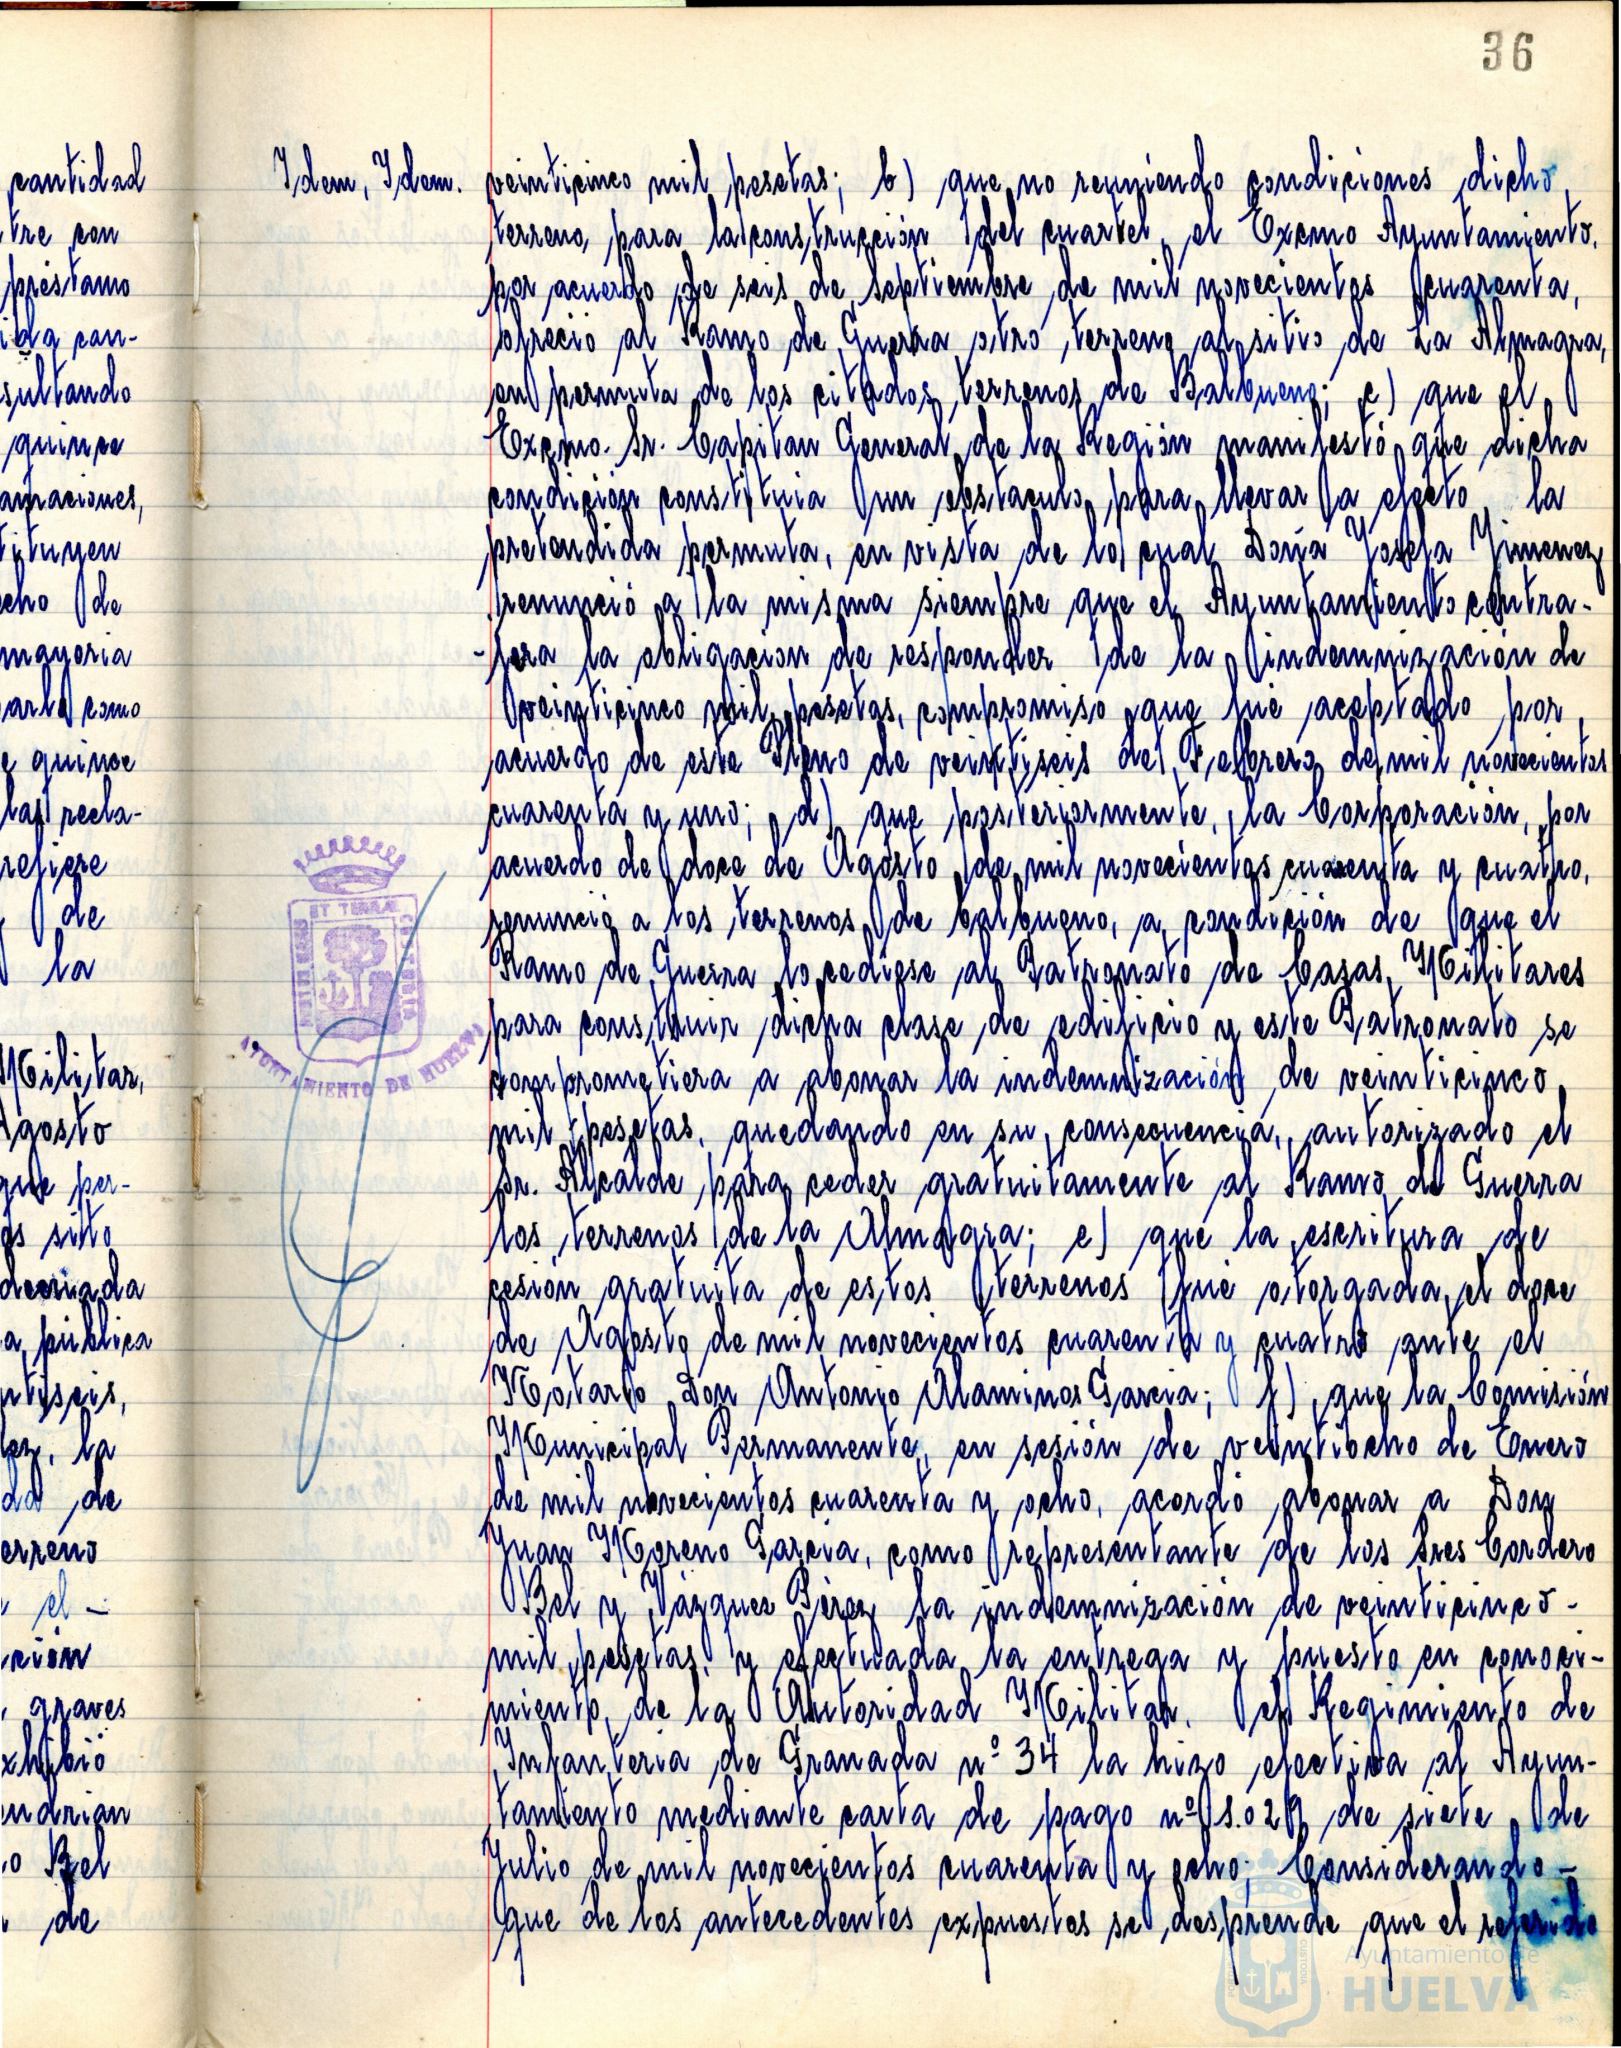 36
cantidad
tre con
préstamo
ida can-
sultando
quince
amaciones,
tituyen
cho de
mayoria
arla como
e quince
las recla-
refiere
de
la
Militar,
Agosto
que per-
os sito
decriada
a publica
ntiseis,
lez, la
da de
erreno
el -
ción
graves
xhibió
endrian
o Bel
de
Idem, Idem.
veinticinco mil pesetas; b) que no reuniendo condiciones dicho
terreno, para la construcción del cuartel, el Excmo Ayuntamiento,
por acuerdo de seis de Septiembre de mil novecientos cuarenta,
ofreció al Ramo de Guerra otro terreno al sitio de La Almagra,
en permuta de los citados terrenos de Balbueno; c) que el
Excmo. Sr. Capitan General de la Región manifestó que dicha
condición constituia un obstaculo para llevar a efecto la
pretendida permuta, en vista de lo cual Doña Josefa Jimenez
renunció a la misma siempre que el Ayuntamiento contra-
-jera la obligacion de responder de la indemnización de
veinticinco mil pesetas, compromiso que fué aceptado por
acuerdo de este Pleno de veintiseis de Febrero de mil novecientos
cuarenta y uno; d) que posteriormente, la Corporación, por
acuerdo de doce de Agosto de mil novecientos cuarenta y cuatro,
renunció a los terrenos de Balbueno, a condición de que el
Ramo de Guerra lo cediese al Patronato de Casas Militares
para construir dicha clase de edificio y este Patronato se
comprometiera a abonar la indemnización de veinticinco
mil pesetas, quedando en su consecuencia, autorizado el
Sr. Alcalde para ceder gratuitamente al Ramo de Guerra
los terrenos de la Almagra; e) que la escritura de
cesión gratuita de estos terrenos fué otorgada el doce
de Agosto de mil novecientos cuarenta y cuatro ante el
Notario Don Antonio Alaminos Garcia; f) que la Comisión
Municipal Permanente, en sesión de veintiocho de Enero
de mil novecientos cuarenta y ocho, acordó abonar a Don
Juan Moreno Garcia, como representante de los Sres Cordero
Bel y Vázquez Pérez la indemnización de veinticinco -
mil pesetas, y efectuada la entrega y puesto en conoci-
miento de la Autoridad Militar, el Regimiento de
Infanteria de Granada nº 34 la hizo efectiva al Ayun-
tamiento mediante carta de pago nº 1.029 de siete de
Julio de mil novecientos cuarenta y ocho; Considerando -
que de los antecedentes expuestos se desprende que el referido
AYUNTAMIENTO DE HUELVA
Ayuntamiento de
HUELVA